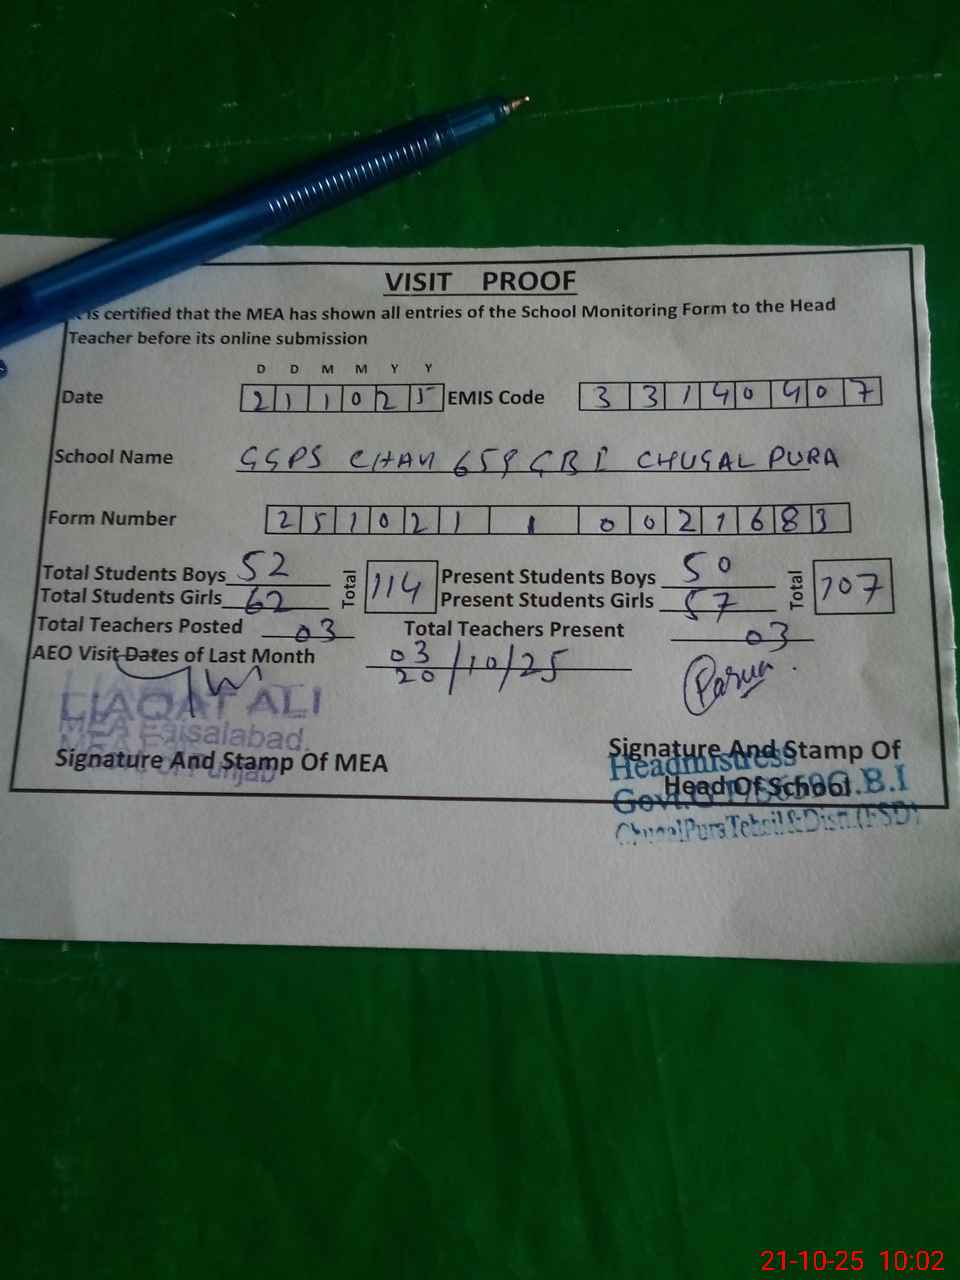 VISIT PROOF
is certified that the MEA has shown all entries of the School Monitoring Form to the Head
Teacher before its online submission
D D M M Y Y
Date 2 1 1 0 2 5 EMIS Code 3 3 1 4 0 4 0 7
School Name GGPS CHAK 659 GB I CHUGAL PURA
Form Number 2 5 1 0 2 1 1 0 0 2 1 6 8 3
Total Students Boys 52 Total 114 Present Students Boys 50 Total 107
Total Students Girls 62 Present Students Girls 57
Total Teachers Posted 03 Total Teachers Present 03
AEO Visit Dates of Last Month 03
20/10/25
LIAQAT ALI
MEA Faisalabad.
Punjab
Signature And Stamp Of MEA
Signature And Stamp Of
Head Of School
Headmistress
Govt. G.B.I
ChugalPura Tehsil & Distt. (FSD)
21-10-25 10:02